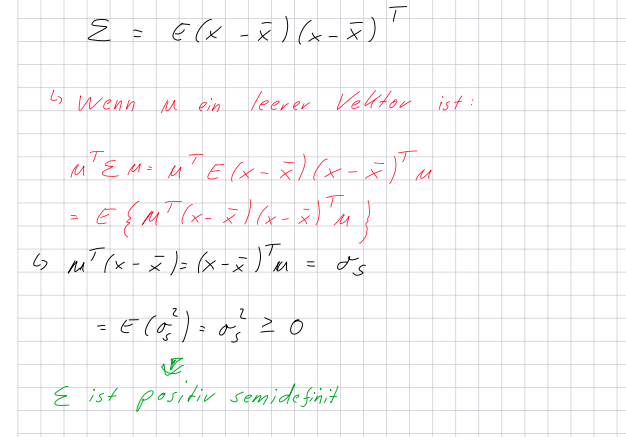 Σ = E(x - x̄)(x - x̄)ᵀ
↳ Wenn u ein leerer Vektor ist:
uᵀΣu = uᵀE(x - x̄)(x - x̄)ᵀu
= E{uᵀ(x - x̄)(x - x̄)ᵀu}
↳ uᵀ(x - x̄) = (x - x̄)ᵀu = σₛ
= E(σₛ²) = σₛ² ≥ 0
Σ ist positiv semidefinit